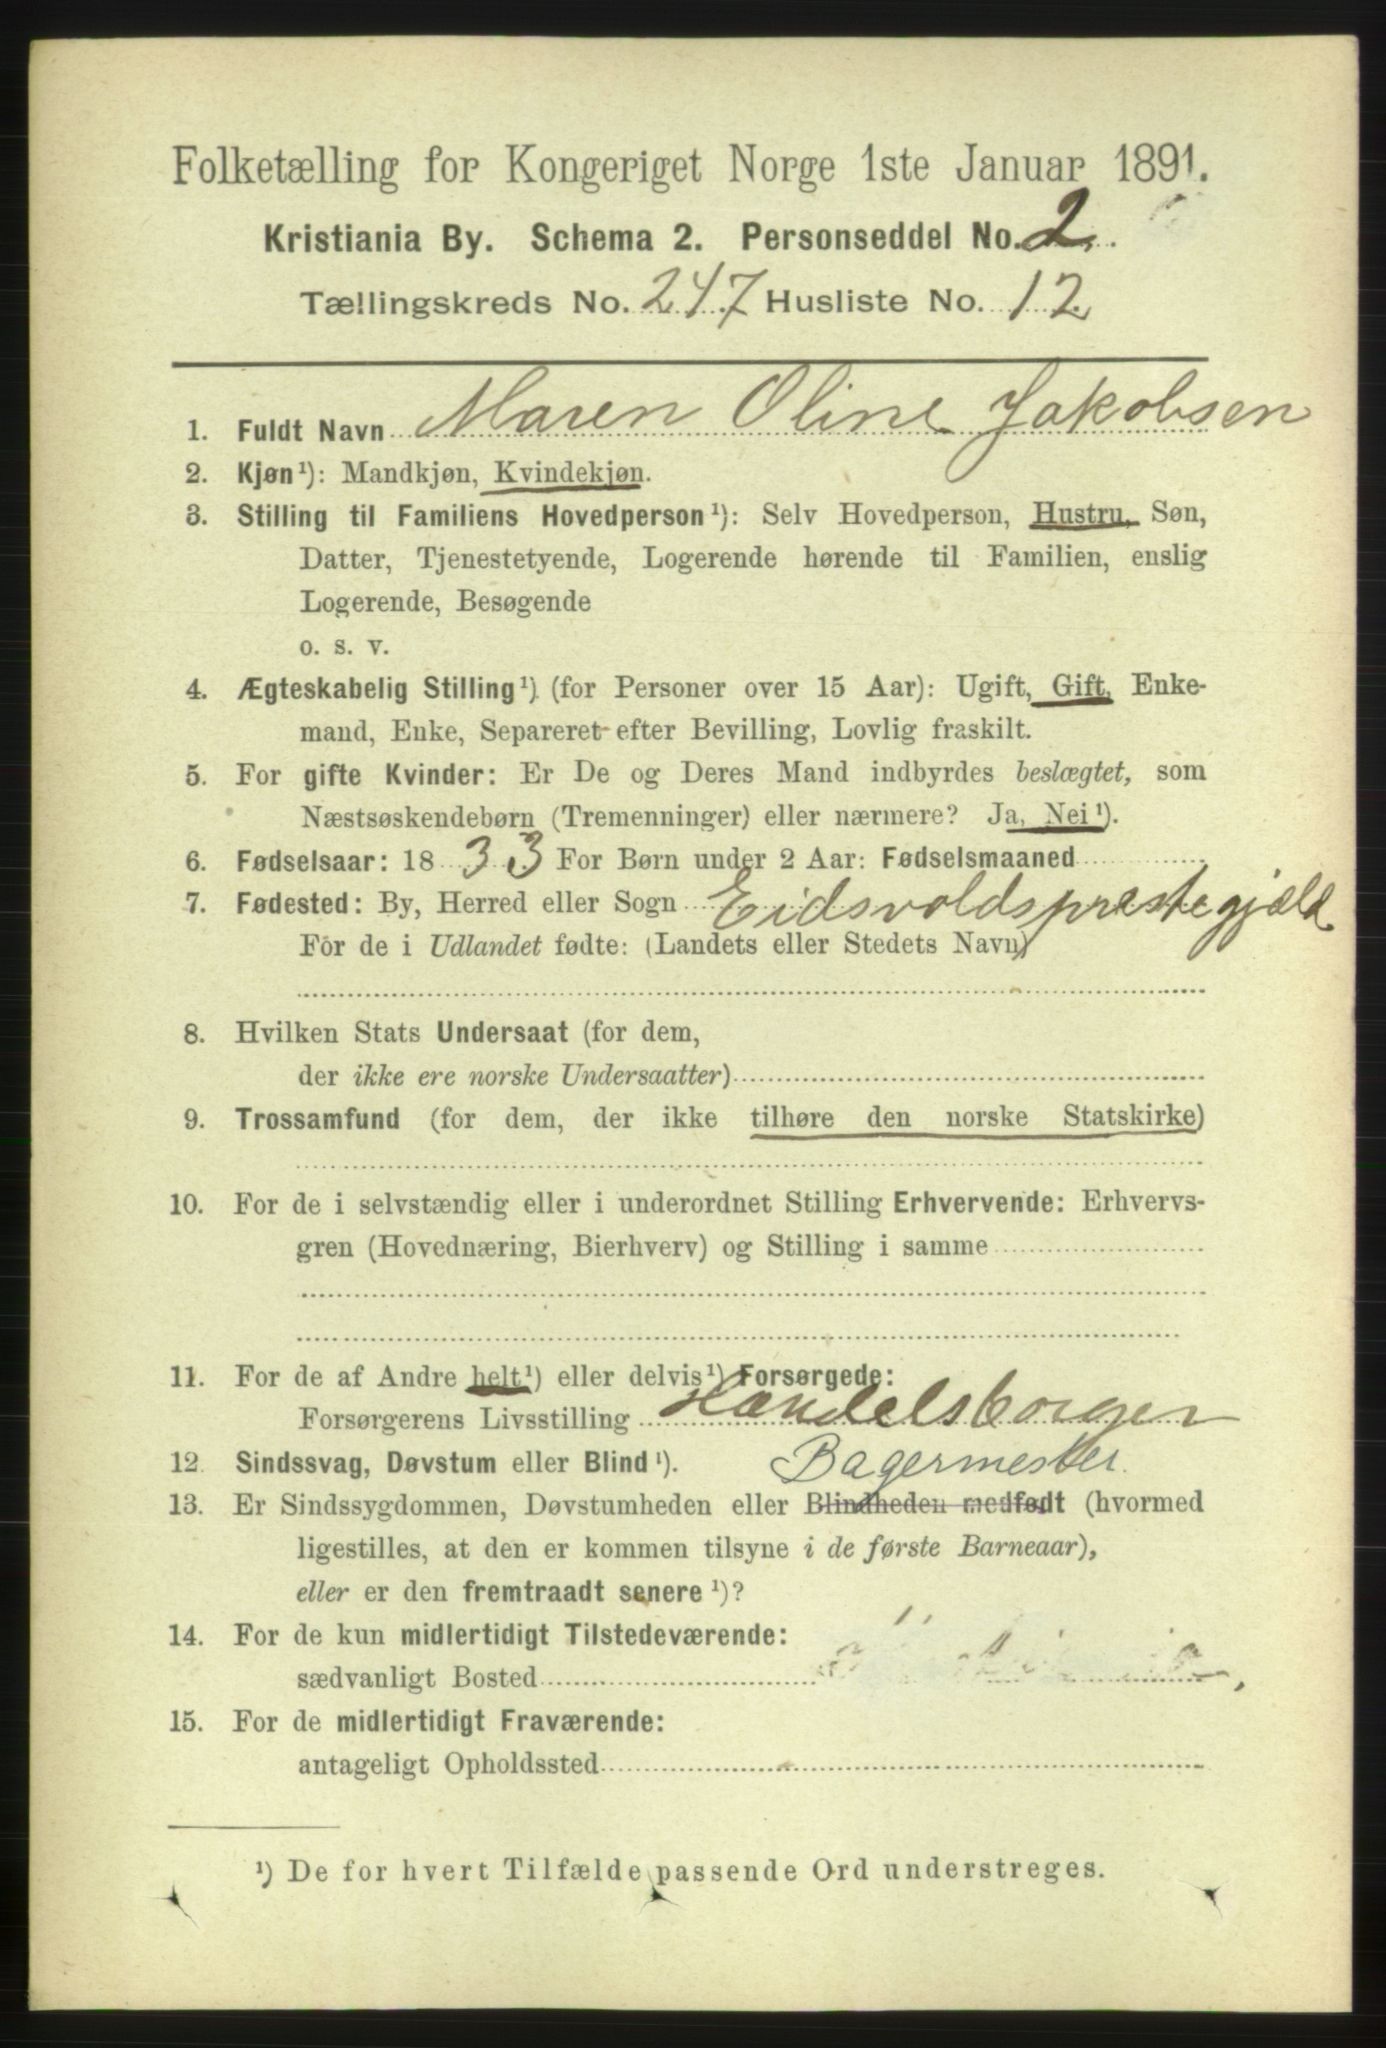 Folketælling for Kongeriget Norge 1ste Januar 1891.
Kristiania By. Schema 2. Personseddel No. 2.
Tællingskreds No. 247 Husliste No. 12.
1. Fuldt Navn Maren Oline Jakobsen
2. Kjøn¹): Mandkjøn, Kvindekjøn.
3. Stilling til Familiens Hovedperson¹): Selv Hovedperson, Hustru, Søn,
Datter, Tjenestetyende, Logerende hørende til Familien, enslig
Logerende, Besøgende
o. s. v.
4. Ægteskabelig Stilling¹) (for Personer over 15 Aar): Ugift, Gift, Enke-
mand, Enke, Separeret efter Bevilling, Lovlig fraskilt.
5. For gifte Kvinder: Er De og Deres Mand indbyrdes beslægtet, som
Næstsøskendebørn (Tremenninger) eller nærmere? Ja, Nei¹).
6. Fødselsaar: 1833 For Børn under 2 Aar: Fødselsmaaned
7. Fødested: By, Herred eller Sogn Eidsvoldspræstegjæld
For de i Udlandet fødte: (Landets eller Stedets Navn)
8. Hvilken Stats Undersaat (for dem,
der ikke ere norske Undersaatter)
9. Trossamfund (for dem, der ikke tilhøre den norske Statskirke)
10. For de i selvstændig eller i underordnet Stilling Erhvervende: Erhvervs-
gren (Hovednæring, Bierhverv) og Stilling i samme
11. For de af Andre helt¹) eller delvis¹) Forsørgede:
Forsørgerens Livsstilling Handelsborger
Bagermester.
12 Sindssvag, Døvstum eller Blind¹).
13. Er Sindssygdommen, Døvstumheden eller Blindheden medfødt (hvormed
ligestilles, at den er kommen tilsyne i de første Barneaar),
eller er den fremtraadt senere¹)?
14. For de kun midlertidigt Tilstedeværende:
sædvanligt Bosted
15. For de midlertidigt Fraværende:
antageligt Opholdssted
¹) De for hvert Tilfælde passende Ord understreges.